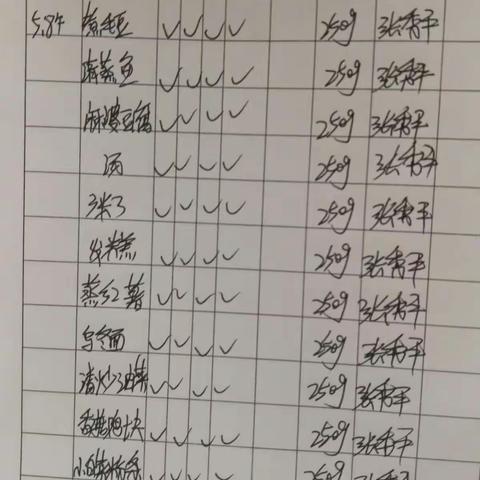 5.8午 煮毛豆 ✓ ✓ ✓ ✓ 250g 张秀平
清蒸鱼 ✓ ✓ ✓ ✓ 250g 张秀平
麻婆豆腐 ✓ ✓ ✓ ✓ 250g 张秀平
汤 ✓ ✓ ✓ ✓ 250g 张秀平
✓ ✓ ✓ ✓ 250g 张秀平
发糕 ✓ ✓ ✓ ✓ 250g 张秀平
蒸红薯 ✓ ✓ ✓ ✓ 250g 张秀平
乌冬面 ✓ ✓ ✓ ✓ 250g 张秀平
清炒油菜 ✓ ✓ ✓ ✓ 250g 张秀平
✓ ✓ ✓ ✓ 250g 张秀平
250g 张秀平